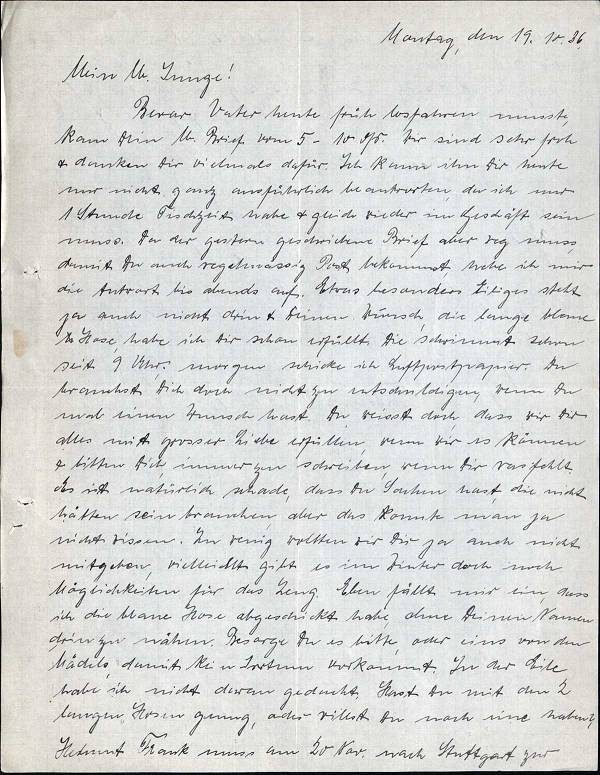 Montag, den 19. 10. 36.
Mein lb. Junge!
Bevor Vater heute früh losfahren musste,
kam Dein lb. Brief vom 5 - 10 ds. Wir sind sehr froh
& danken Dir vielmals dafür. Ich kann ihn Dir heute
nur nicht ganz ausführlich beantworten, da ich nur
1 Stunde Tischzeit habe & gleich wieder im Geschäft sein
muss. Da der gestern geschriebene Brief aber weg muss,
damit Du auch regelmässig Post bekommst hebe ich mir
die Antwort bis abends auf. Etwas besonders Eiliges steht
ja auch nicht drin & Deinen Wunsch, die lange blaue
Hose, habe ich Dir schon erfüllt. Die schwimmt schon
seit 9 Uhr. morgen schicke ich Luftpostpapier. Du
brauchst Dich doch nicht zu entschuldigen, wenn Du
mal einen Wunsch hast. Du weisst doch dass wir Dir
alles mit grosser Liebe erfüllen, wenn wir es können
& bitten Dich immer zu schreiben, wenn Dir was fehlt
Es ist natürlich schade, dass Du Sachen hast die nicht
hätten sein brauchen, aber das konnte man ja
nicht wissen. Zu wenig wollten wir Dir ja auch nicht
mitgeben, vielleicht gibt es im Winter doch noch
Möglichkeiten für das Zeug. Eben fällt mir ein dass
ich die blaue Hose abgeschickt habe, ohne Deinen Namen
drin zu nähen. Besorge Du es bitte, oder eins von den
Mädels, damit kein Irrtum vorkommt. In der Eile
habe ich nicht daran gedacht. Hast Du mit den 2
langen Hosen genug, oder willst Du noch eine haben?
Helmut Frank muss am 20 Nov. nach Stuttgart zur